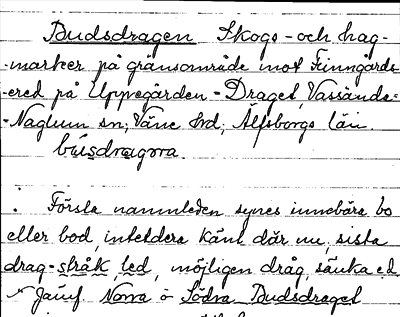 Budsdragen Skogs- och hag-
-marker på gränsområde mot Finngårds-
-ered på Uppegården - Draget, Vassända-
-Naglum sn; Väne hrd; Älfsborgs län.
búsdragora.
Första namnleden synes innebära bo
eller bod, intetdera känt där nu, sista
drag- stråk led, möjligen dråg, sänka e.d.
Jämf. Norra o Södra Budsdraget